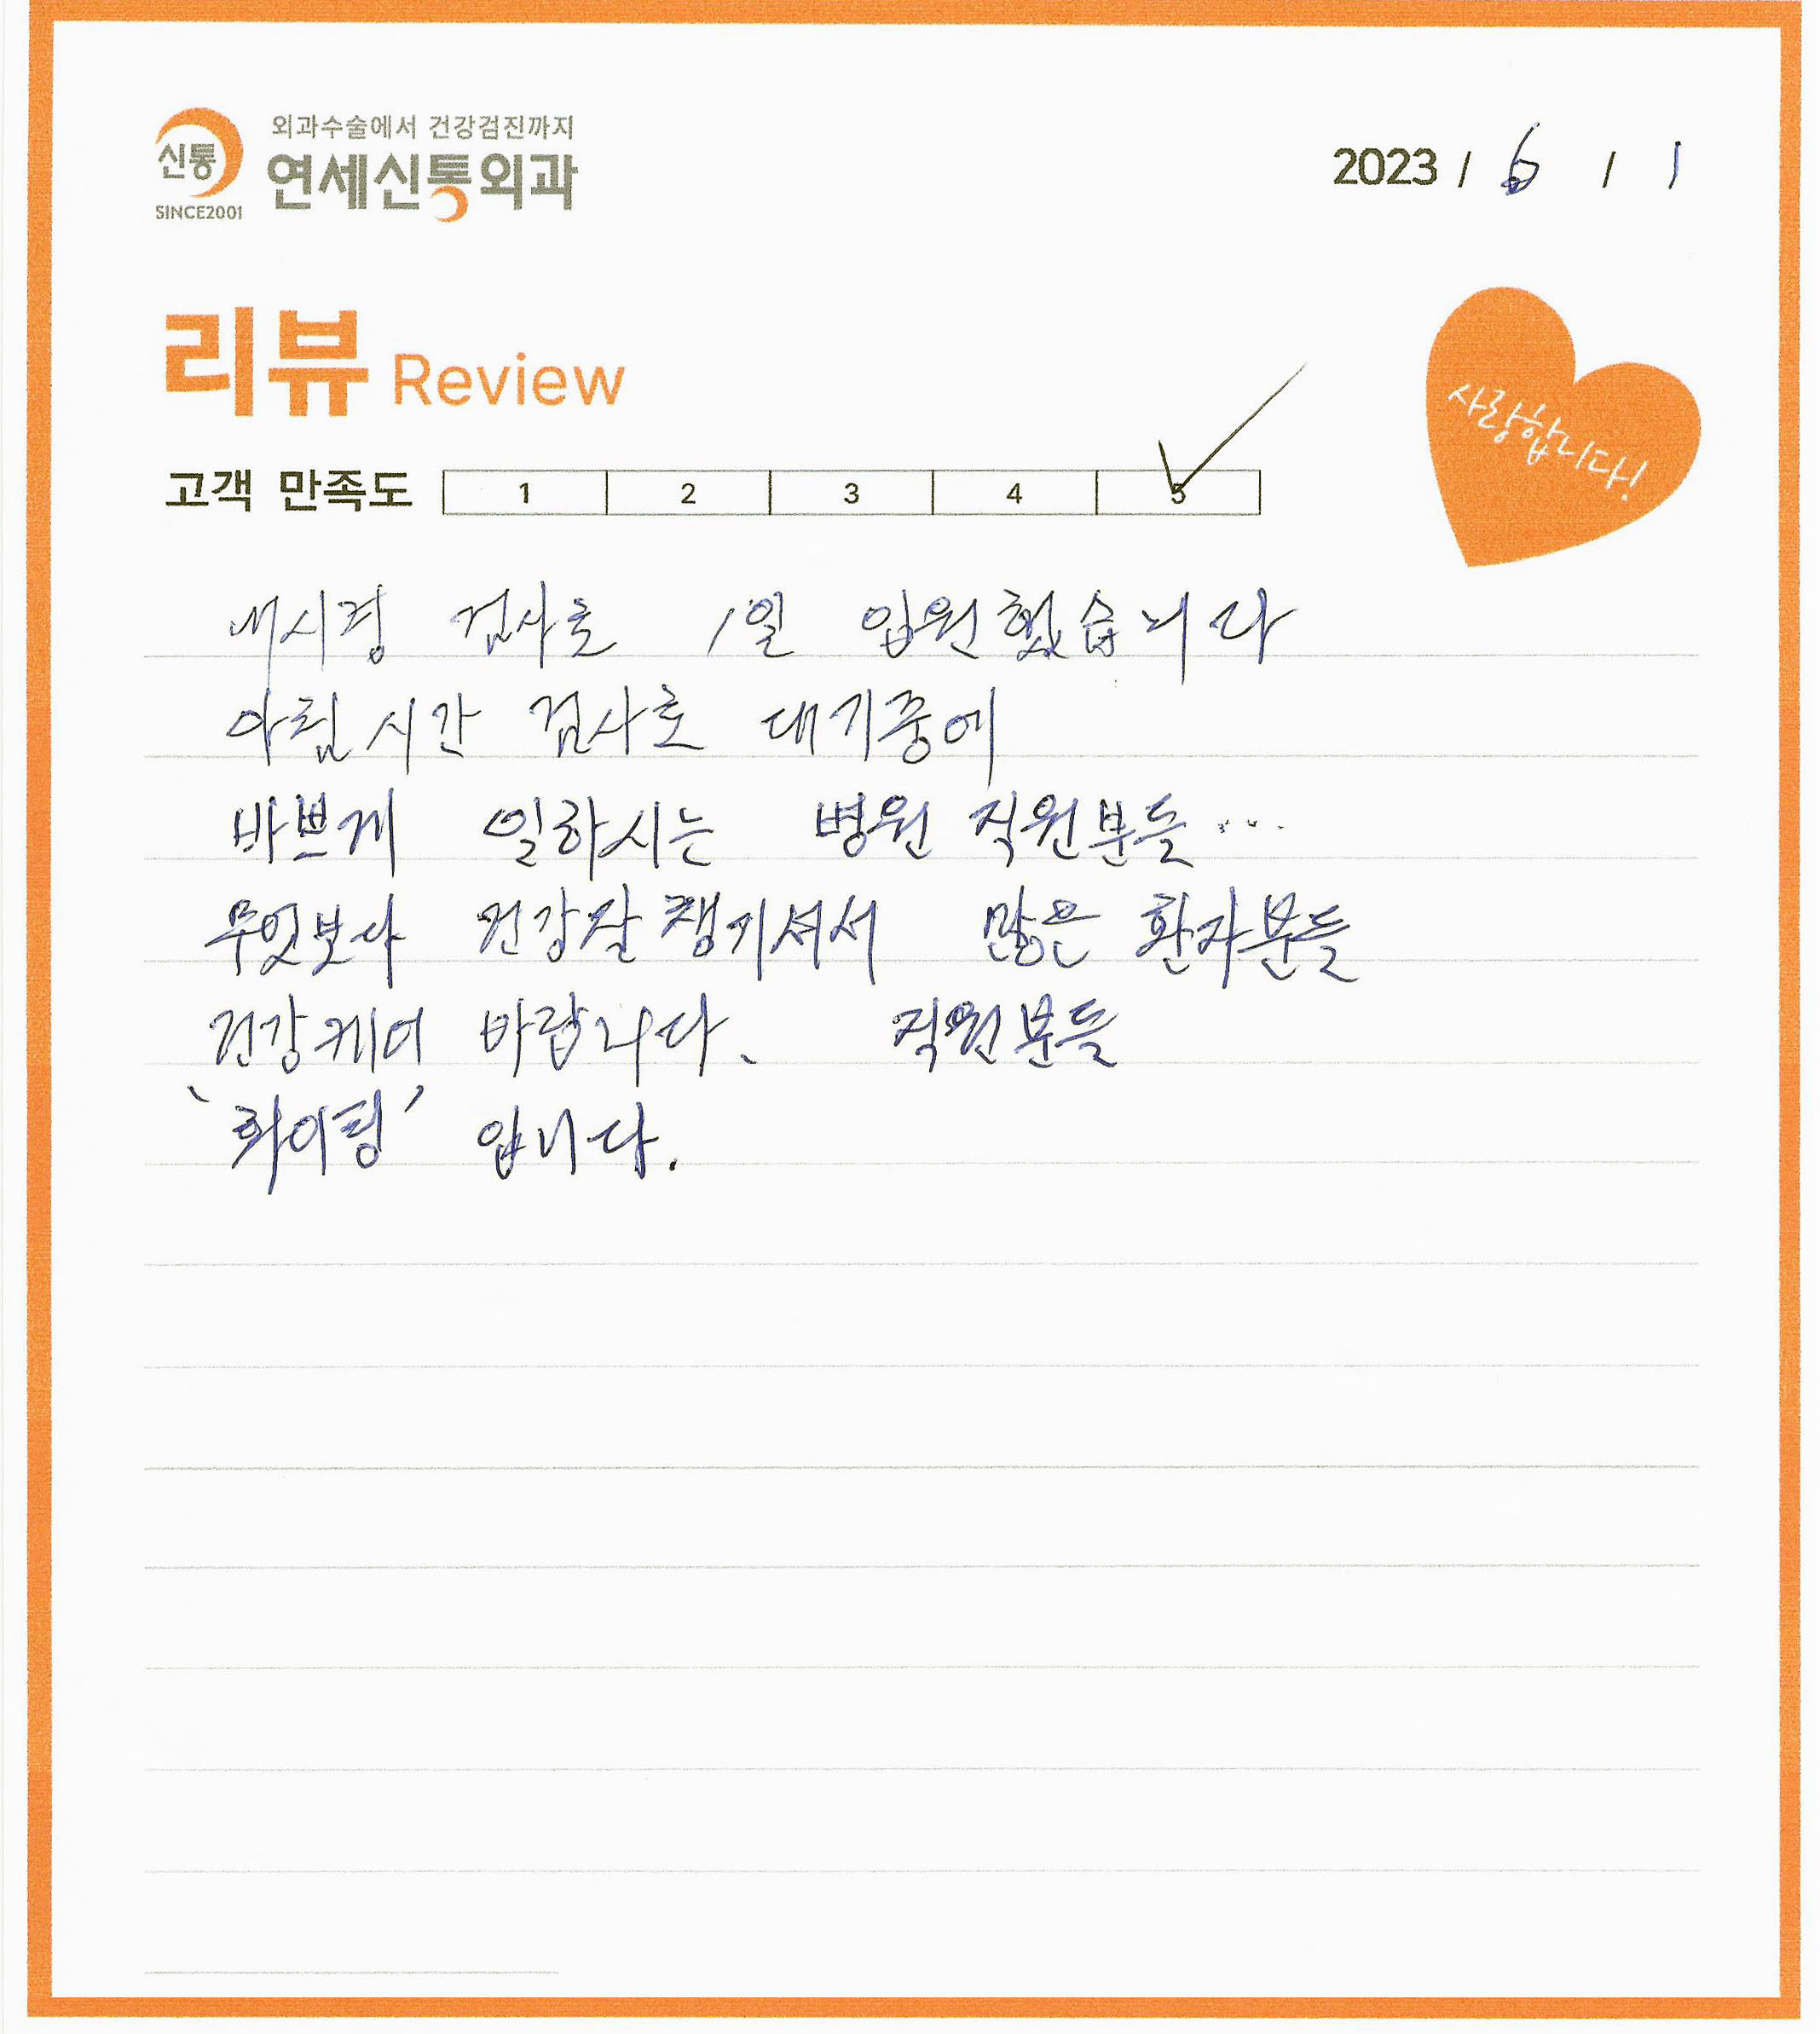 외과수술에서 건강검진까지
신통 연세신통외과
SINCE2001
2023 / 6 / 1
리뷰 Review
사랑합니다!
고객 만족도 1 2 3 4 5
내시경 검사로 1일 입원했습니다
아침시간 검사로 대기중에
바쁘게 일하시는 병원 직원분들...
무엇보다 건강잘챙기셔서 많은 환자분들
건강케어 바랍니다. 직원분들
'화이팅' 입니다.